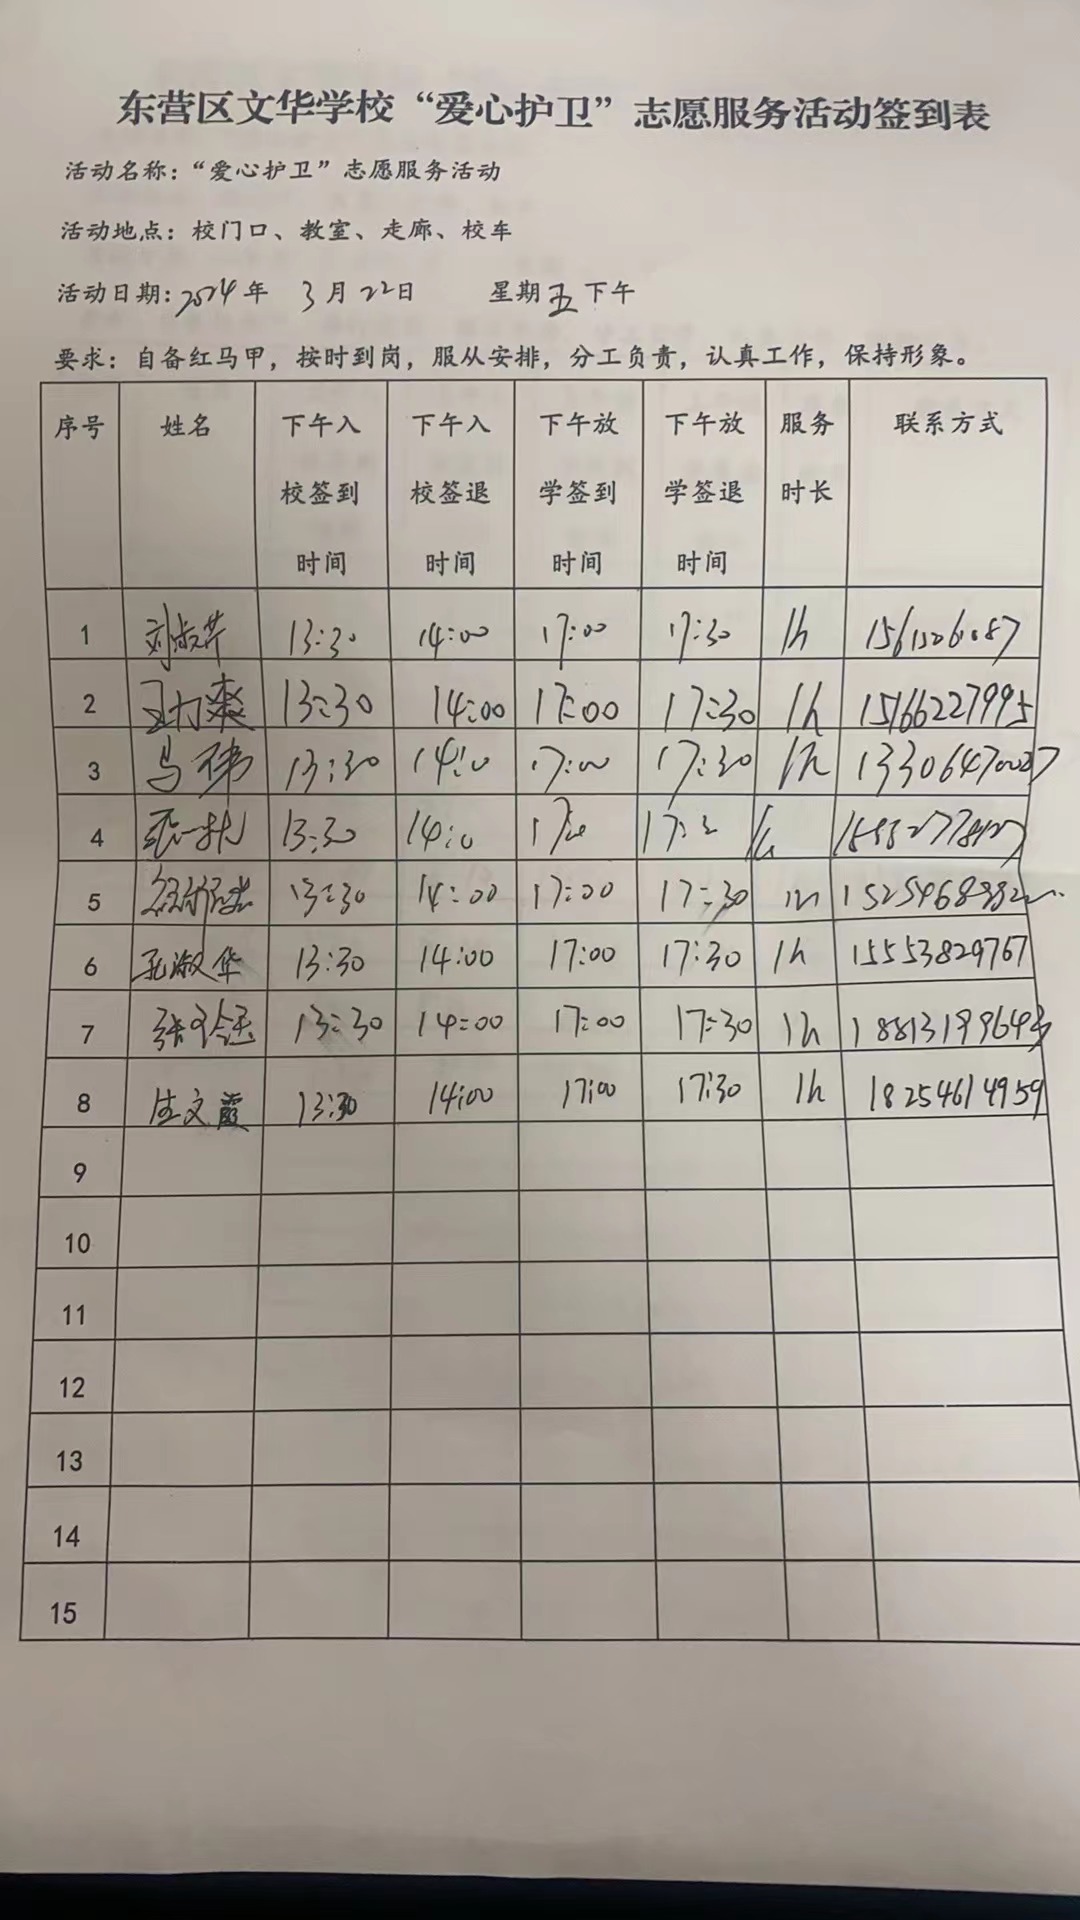 东营区文华学校“爱心护卫”志愿服务活动签到表
活动名称：“爱心护卫”志愿服务活动
活动地点：校门口、教室、走廊、校车
活动日期：2024年 3月22日 星期五下午
要求：自备红马甲，按时到岗，服从安排，分工负责，认真工作，保持形象。
序号 姓名 下午入校签到时间 下午入校签退时间 下午放学签到时间 下午放学签退时间 服务时长 联系方式
1 刘淑芹 13:30 14:00 17:00 17:30 1h
2 王力爽 13:30 14:00 17:00 17:30 1h 15166227995
3 马伟 13:30 14:0 17:00 17:30 1h 13306470027
4 13:30 14:0
5 13:30 14:00 17:00 17:30 1h
6 孔淑华 13:30 14:00 17:00 17:30 1h 15553829767
7 13:30 14:00 17:00 17:30 1h
8 生文霞 13:30 14:00 17:00 17:30 1h 18254614959
9
10
11
12
13
14
15